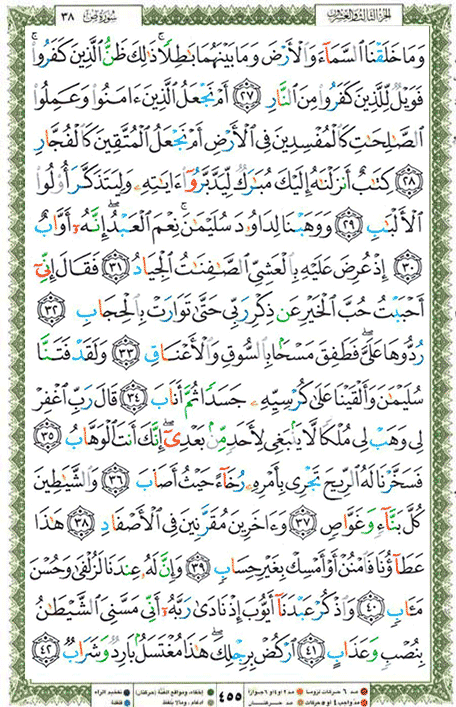 الجزء الثالث والعشرون
سورة ص ٣٨
وَمَا خَلَقْنَا ٱلسَّمَآءَ وَٱلْأَرْضَ وَمَا بَيْنَهُمَا بَٰطِلًا ۚ ذَٰلِكَ ظَنُّ ٱلَّذِينَ كَفَرُوا۟ ۚ
فَوَيْلٌ لِّلَّذِينَ كَفَرُوا۟ مِنَ ٱلنَّارِ ٢٧ أَمْ نَجْعَلُ ٱلَّذِينَ ءَامَنُوا۟ وَعَمِلُوا۟
ٱلصَّٰلِحَٰتِ كَٱلْمُفْسِدِينَ فِى ٱلْأَرْضِ أَمْ نَجْعَلُ ٱلْمُتَّقِينَ كَٱلْفُجَّارِ
٢٨ كِتَٰبٌ أَنزَلْنَٰهُ إِلَيْكَ مُبَٰرَكٌ لِّيَدَّبَّرُوٓا۟ ءَايَٰتِهِۦ وَلِيَتَذَكَّرَ أُو۟لُوا۟
ٱلْأَلْبَٰبِ ٢٩ وَوَهَبْنَا لِدَاوُۥدَ سُلَيْمَٰنَ ۚ نِعْمَ ٱلْعَبْدُ ۖ إِنَّهُۥٓ أَوَّابٌ
٣٠ إِذْ عُرِضَ عَلَيْهِ بِٱلْعَشِىِّ ٱلصَّٰفِنَٰتُ ٱلْجِيَادُ ٣١ فَقَالَ إِنِّىٓ
أَحْبَبْتُ حُبَّ ٱلْخَيْرِ عَن ذِكْرِ رَبِّى حَتَّىٰ تَوَارَتْ بِٱلْحِجَابِ ٣٢
رُدُّوهَا عَلَىَّ ۖ فَطَفِقَ مَسْحًۢا بِٱلسُّوقِ وَٱلْأَعْنَاقِ ٣٣ وَلَقَدْ فَتَنَّا
سُلَيْمَٰنَ وَأَلْقَيْنَا عَلَىٰ كُرْسِيِّهِۦ جَسَدًا ثُمَّ أَنَابَ ٣٤ قَالَ رَبِّ ٱغْفِرْ
لِى وَهَبْ لِى مُلْكًا لَّا يَنۢبَغِى لِأَحَدٍ مِّنۢ بَعْدِىٓ ۖ إِنَّكَ أَنتَ ٱلْوَهَّابُ ٣٥
فَسَخَّرْنَا لَهُ ٱلرِّيحَ تَجْرِى بِأَمْرِهِۦ رُخَآءً حَيْثُ أَصَابَ ٣٦ وَٱلشَّيَٰطِينَ
كُلَّ بَنَّآءٍ وَغَوَّاصٍ ٣٧ وَءَاخَرِينَ مُقَرَّنِينَ فِى ٱلْأَصْفَادِ ٣٨ هَٰذَا
عَطَآؤُنَا فَٱمْنُنْ أَوْ أَمْسِكْ بِغَيْرِ حِسَابٍ ٣٩ وَإِنَّ لَهُۥ عِندَنَا لَزُلْفَىٰ وَحُسْنَ
مَـَٔابٍ ٤٠ وَٱذْكُرْ عَبْدَنَآ أَيُّوبَ إِذْ نَادَىٰ رَبَّهُۥٓ أَنِّى مَسَّنِىَ ٱلشَّيْطَٰنُ
بِنُصْبٍ وَعَذَابٍ ٤١ ٱرْكُضْ بِرِجْلِكَ ۖ هَٰذَا مُغْتَسَلٌۢ بَارِدٌ وَشَرَابٌ ٤٢
مد ٦ حركات لزوما مد ٢ او ٤ او ٦ جوازا
مد واجب ٤ او ٥ حركات مد حركتان
٤٥٥
إخفاء، ومواقع الغنة (حركتان) تفخيم الراء
ادغام، وما لا يلفظ قلقلة